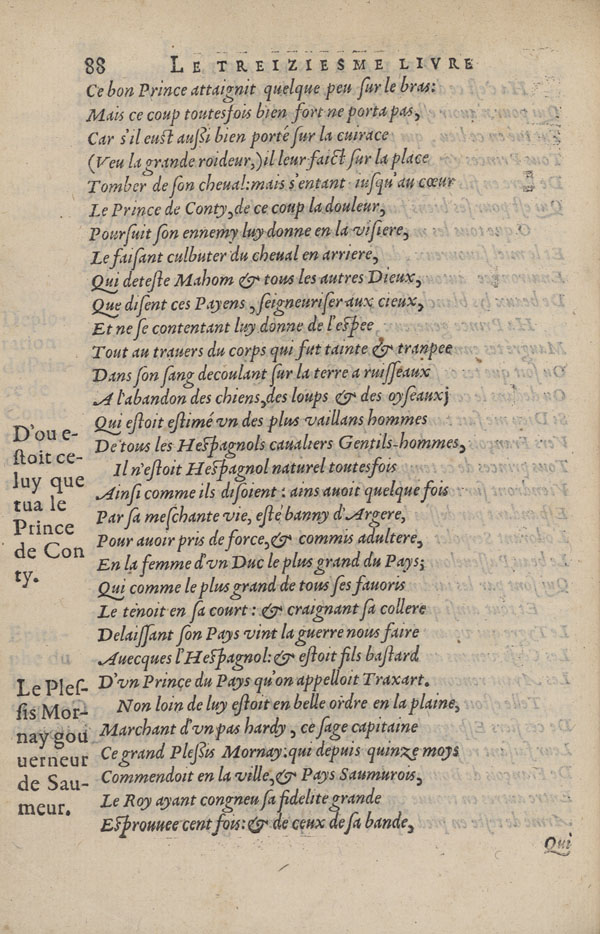 88 LE TREIZIESME LIVRE
Ce bon Prince attaignit quelque peu ſur le bras:
Mais ce coup toutesfois bien fort ne porta pas,
Car s'il euſt außi bien porté ſur la cuirace
(Veu la grande roideur,) il leur faict ſur la place
Tomber de ſon cheual: mais s'entant iuſqu'au cœur
Le Prince de Conty, de ce coup la douleur,
Pourſuit ſon ennemy luy donne en la viſiere,
Le faiſant culbuter du cheual en arriere,
Qui deteſte Mahom & tous les autres Dieux,
Que diſent ces Payens, ſeigneuriſer aux cieux,
Et ne ſe contentant luy donne de l'eſpee
Tout au trauers du corps qui fut tainte & tranpee
Dans ſon ſang decoulant ſur la terre a ruiſſeaux
A l'abandon des chiens, des loups & des oyſeaux;
Qui eſtoit eſtimé vn des plus vaillans hommes
De tous les Heſpagnols caualiers Gentils-hommes,
Il n'eſtoit Heſpagnol naturel toutesfois
Ainſi comme ils diſoient: ains auoit quelque fois
Par ſa meſchante vie, eſté banny d'Argere,
Pour auoir pris de force, & commis adultere,
En la femme d'vn Duc le plus grand du Pays;
Qui comme le plus grand de tous ſes fauoris
Le tenoit en ſa court: & craignant ſa collere
Delaiſſant ſon Pays vint la guerre nous faire
Auecques l'Heſpagnol: & eſtoit fils baſtard
D'vn Prince du Pays qu'on appelloit Traxart.
Non loin de luy eſtoit en belle ordre en la plaine,
Marchant d'vn pas hardy, ce ſage capitaine
Ce grand Pleßis Mornay: qui depuis quinze moys
Commendoit en la ville, & Pays Saumurois,
Le Roy ayant congneu ſa fidelite grande
Eſprouuee cent fois: & de ceux de ſa bande,
Qui
D'ou e-
ſtoit ce-
luy que
tua le
Prince
de Con
ty.
Le Pleſ-
ſis Mor-
nay gou
uerneur
de Sau-
meur.